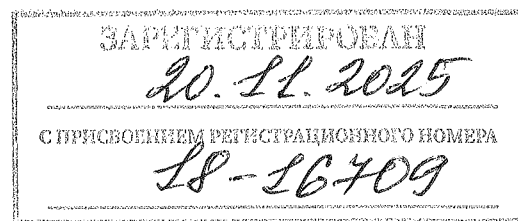 ЗАРЕГИСТРИРОВАН
20.11.2025
С ПРИСВОЕНИЕМ РЕГИСТРАЦИОННОГО НОМЕРА
18-16709